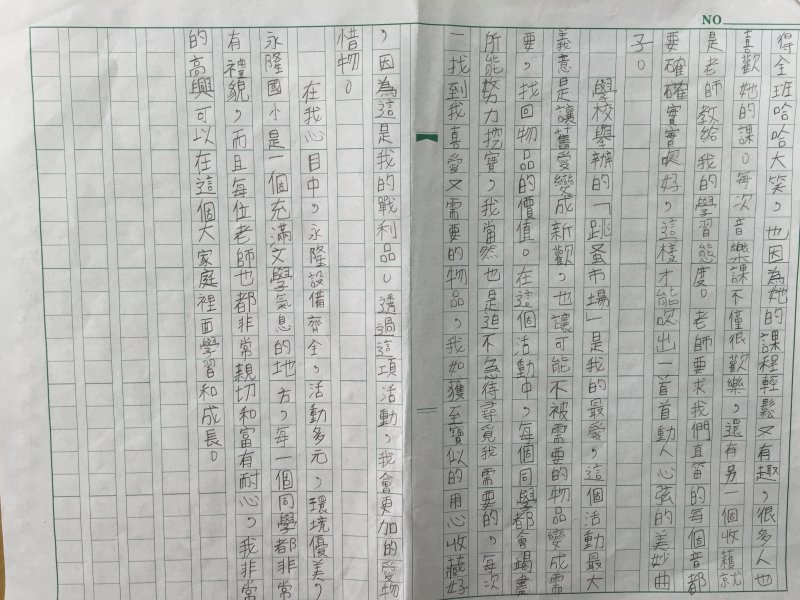 NO.
得全班哈哈大笑，也因為她的課程輕鬆又有趣，很多人也
喜歡她的課。每次音樂課不僅很歡樂，還有另一個收穫就
是老師教給我的學習態度。老師要求我們直笛的每個音都
要確確實實吹好，這樣才能吹出一首首動人心弦的美妙曲
子。
學校舉辦的「跳蚤市場」是我的最愛，這個活動最大
義意是讓舊愛變成新歡，也讓可能不被需要的物品變成需
要，找回物品的價值。在這個活動中，每個同學都會竭盡
所能努力挖寶，我當然也是迫不急待尋覓我需要的，每次
一找到我喜愛又需要的物品，我如獲至寶似的用心收藏好
，因為這是我的戰利品。透過這項活動，我會更加的愛物
惜物。
在我心目中，永隆設備齊全，活動多元，環境優美，
永隆國小是一個充滿文學氣息的地方，每一個同學都非常
有禮貌，而且每位老師也都非常親切和富有耐心，我非常
的高興可以在這個大家庭裡面學習和成長。